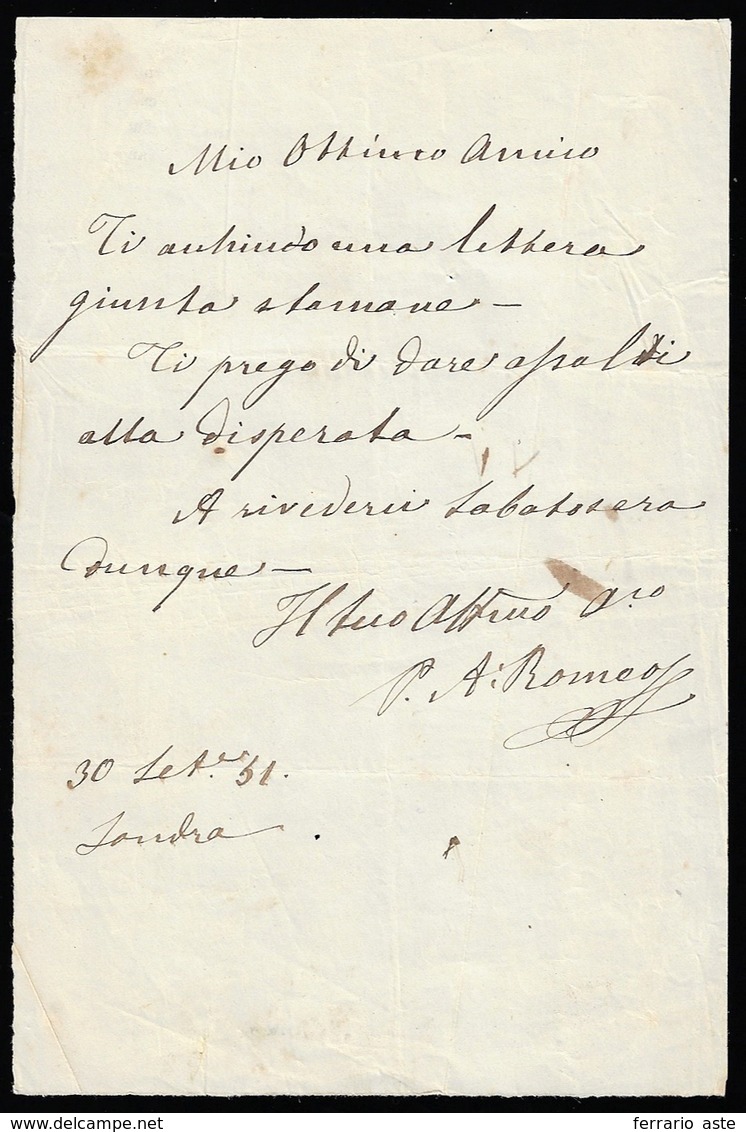 Mio Ottimo Amico
Ti acchiudo una lettera
giunta stamane –
Ti prego di dare assalti
alla disperata –
A rivederci Sabato sera
dunque –
Il tuo Affmo Aco
P. A. Romeo
30 Set.e 51.
Londra
ferrario aste